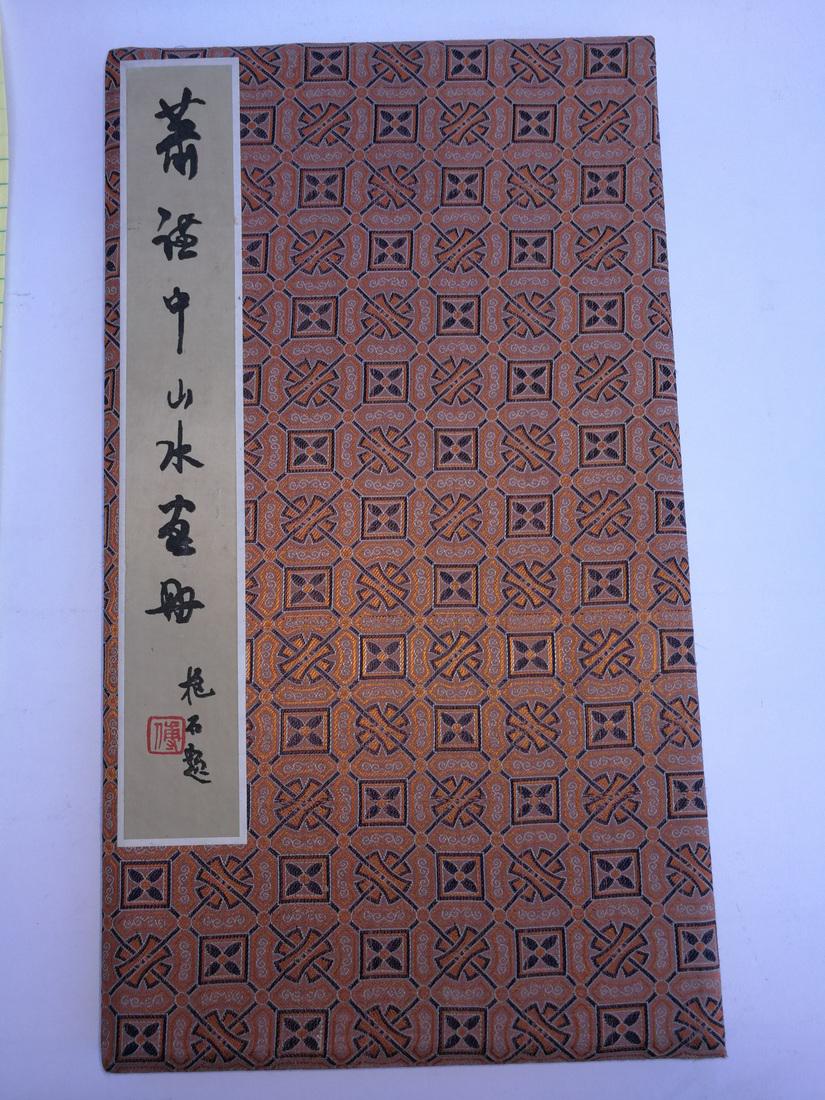 蕭謙中山水畫册
抱石題
傅